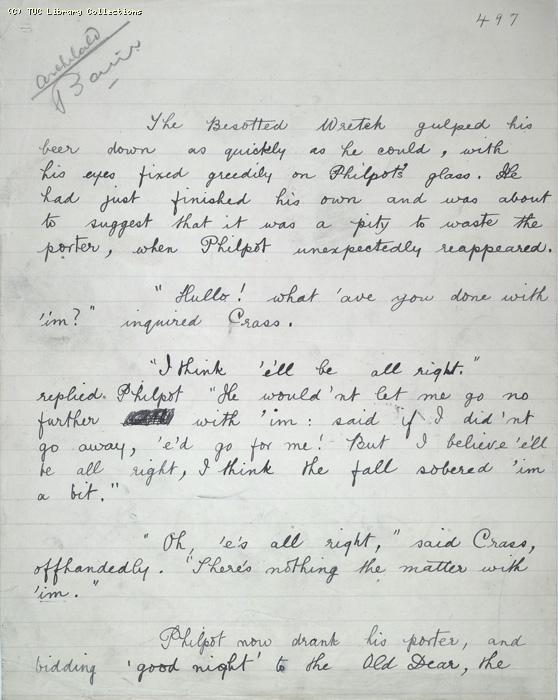 (C) TUC Library Collections
497
Archibald
The Besotted Wretch gulped his
beer down as quickly as he could, with
his eyes fixed greedily on Philpot's glass. He
had just finished his own and was about
to suggest that it was a pity to waste the
porter, when Philpot unexpectedly reappeared.
"Hullo! what 'ave you done with
'im?" inquired Crass.
"I think 'e'll be all right."
replied Philpot "He would'nt let me go no
further with 'im: said if I did'nt
go away, 'e'd go for me! But I believe 'e'll
be all right, I think the fall sobered 'im
a bit."
"Oh, 'e's all right," said Crass,
offhandedly. "There's nothing the matter with
'im."
Philpot now drank his porter, and
bidding 'good night' to the Old Dear, the